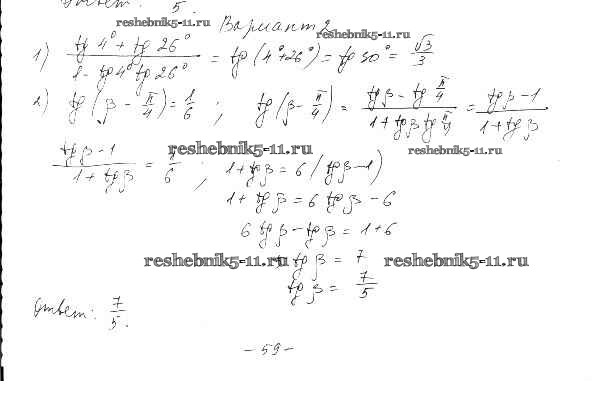 Ответ: 5.
reshebnik5-11.ru Вариант 2 reshebnik5-11.ru
1) (tg 4° + tg 26°) / (1 - tg 4° tg 26°) = tg (4°+26°) = tg 30° = √3/3
2) tg (β - π/4) = 1/6 ; tg (β - π/4) = (tg β - tg π/4) / (1 + tg β tg π/4) = (tg β - 1) / (1 + tg β)
reshebnik5-11.ru reshebnik5-11.ru
(tg β - 1) / (1 + tg β) = 1/6 ; 1 + tg β = 6 (tg β - 1)
1 + tg β = 6 tg β - 6
6 tg β - tg β = 1 + 6
reshebnik5-11.ru tg β = 7 reshebnik5-11.ru
tg β = 7/5
Ответ: 7/5.
- 59 -